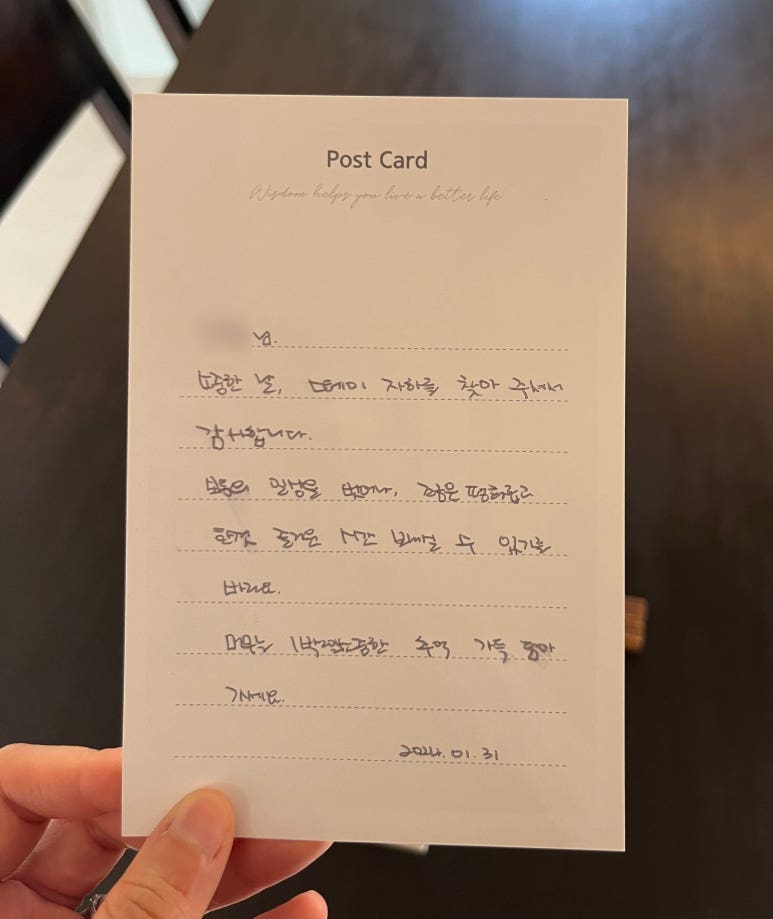 Post Card
Wisdom helps you live a better life
님.
소중한 날, 스테이 자하를 찾아 주셔서
감사합니다.
보통의 일상을 벗어나, 평화롭고
한껏 즐거운 시간 보내실 수 있기를
바라요.
머무는 1박2일 소중한 추억 가득 담아
가세요.
2024.01.31